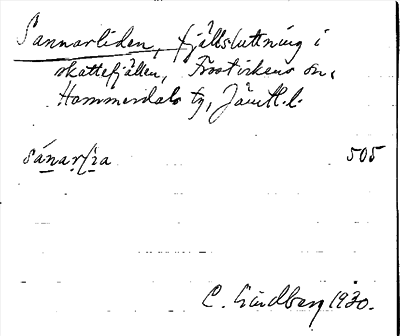 Sannarliden, fjällsluttning i
skattefjällen, Frostvikens sn,
Hammerdals tg, Jämtl. l.
505
C. Lindberg 1930.